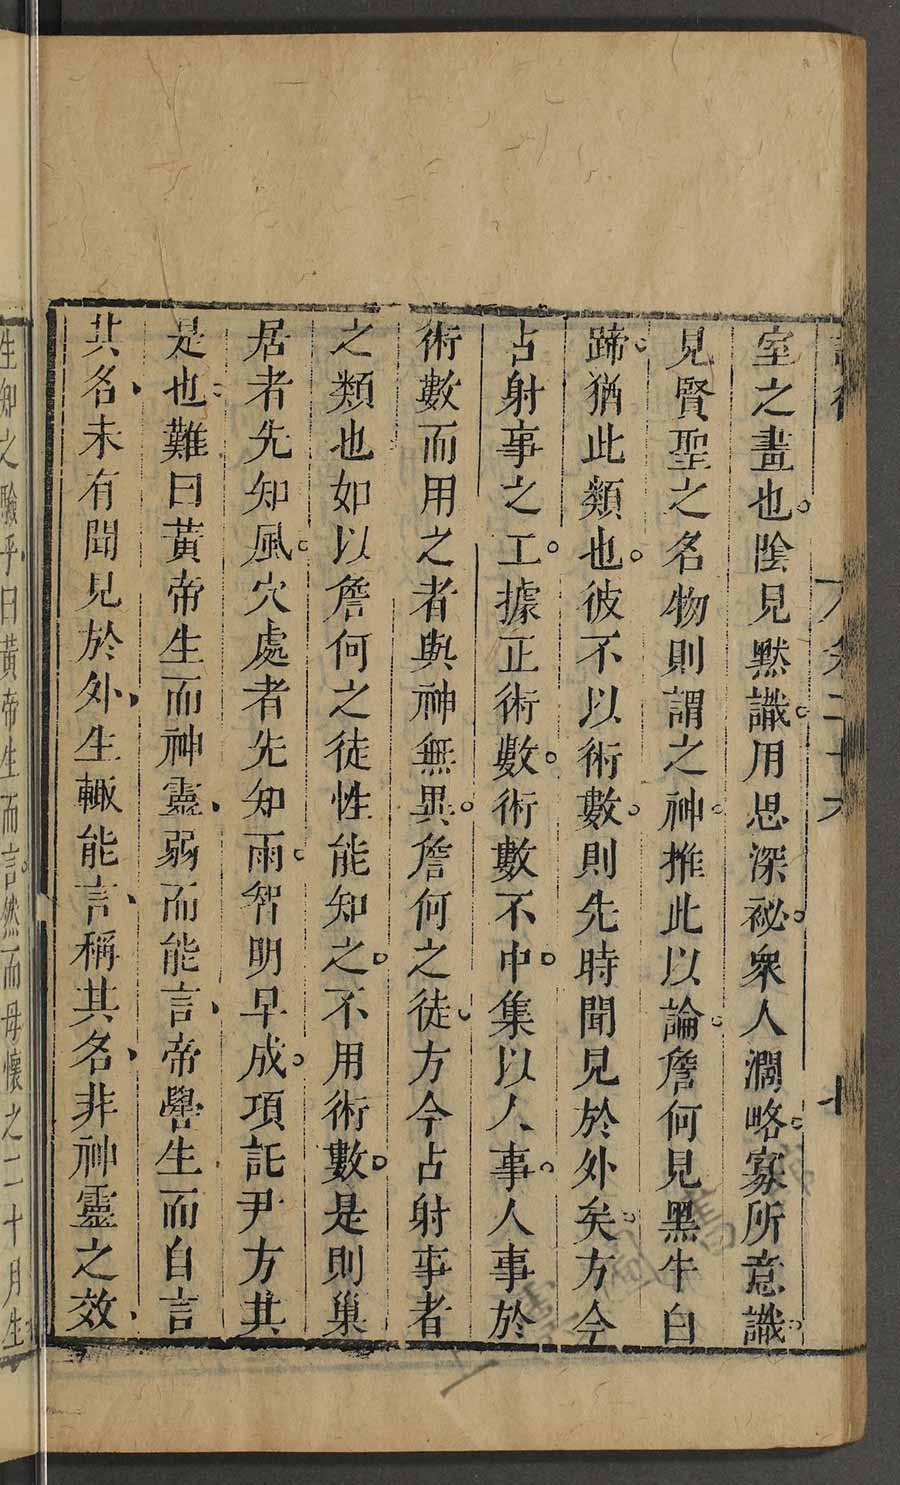 卷二十六
室之晝也陰見黙識用思深祕衆人濶略寡所意識
見賢聖之名物則謂之神推此以論詹何見黑牛白
蹄猶此類也彼不以術數則先時聞見於外矣方今
占射事之工據正術數術數不中集以人事人事於
術數而用之者與神無異詹何之徒方今占射事者
之類也如以詹何之徒性能知之不用術數是則巢
居者先知風穴處者先知雨智明早成項託尹方其
是也難曰黃帝生而神靈弱而能言帝嚳生而自言
其名未有聞見於外生輙能言稱其名非神靈之效
生知之驗乎曰黃帝生而言然而母懷之二十月生